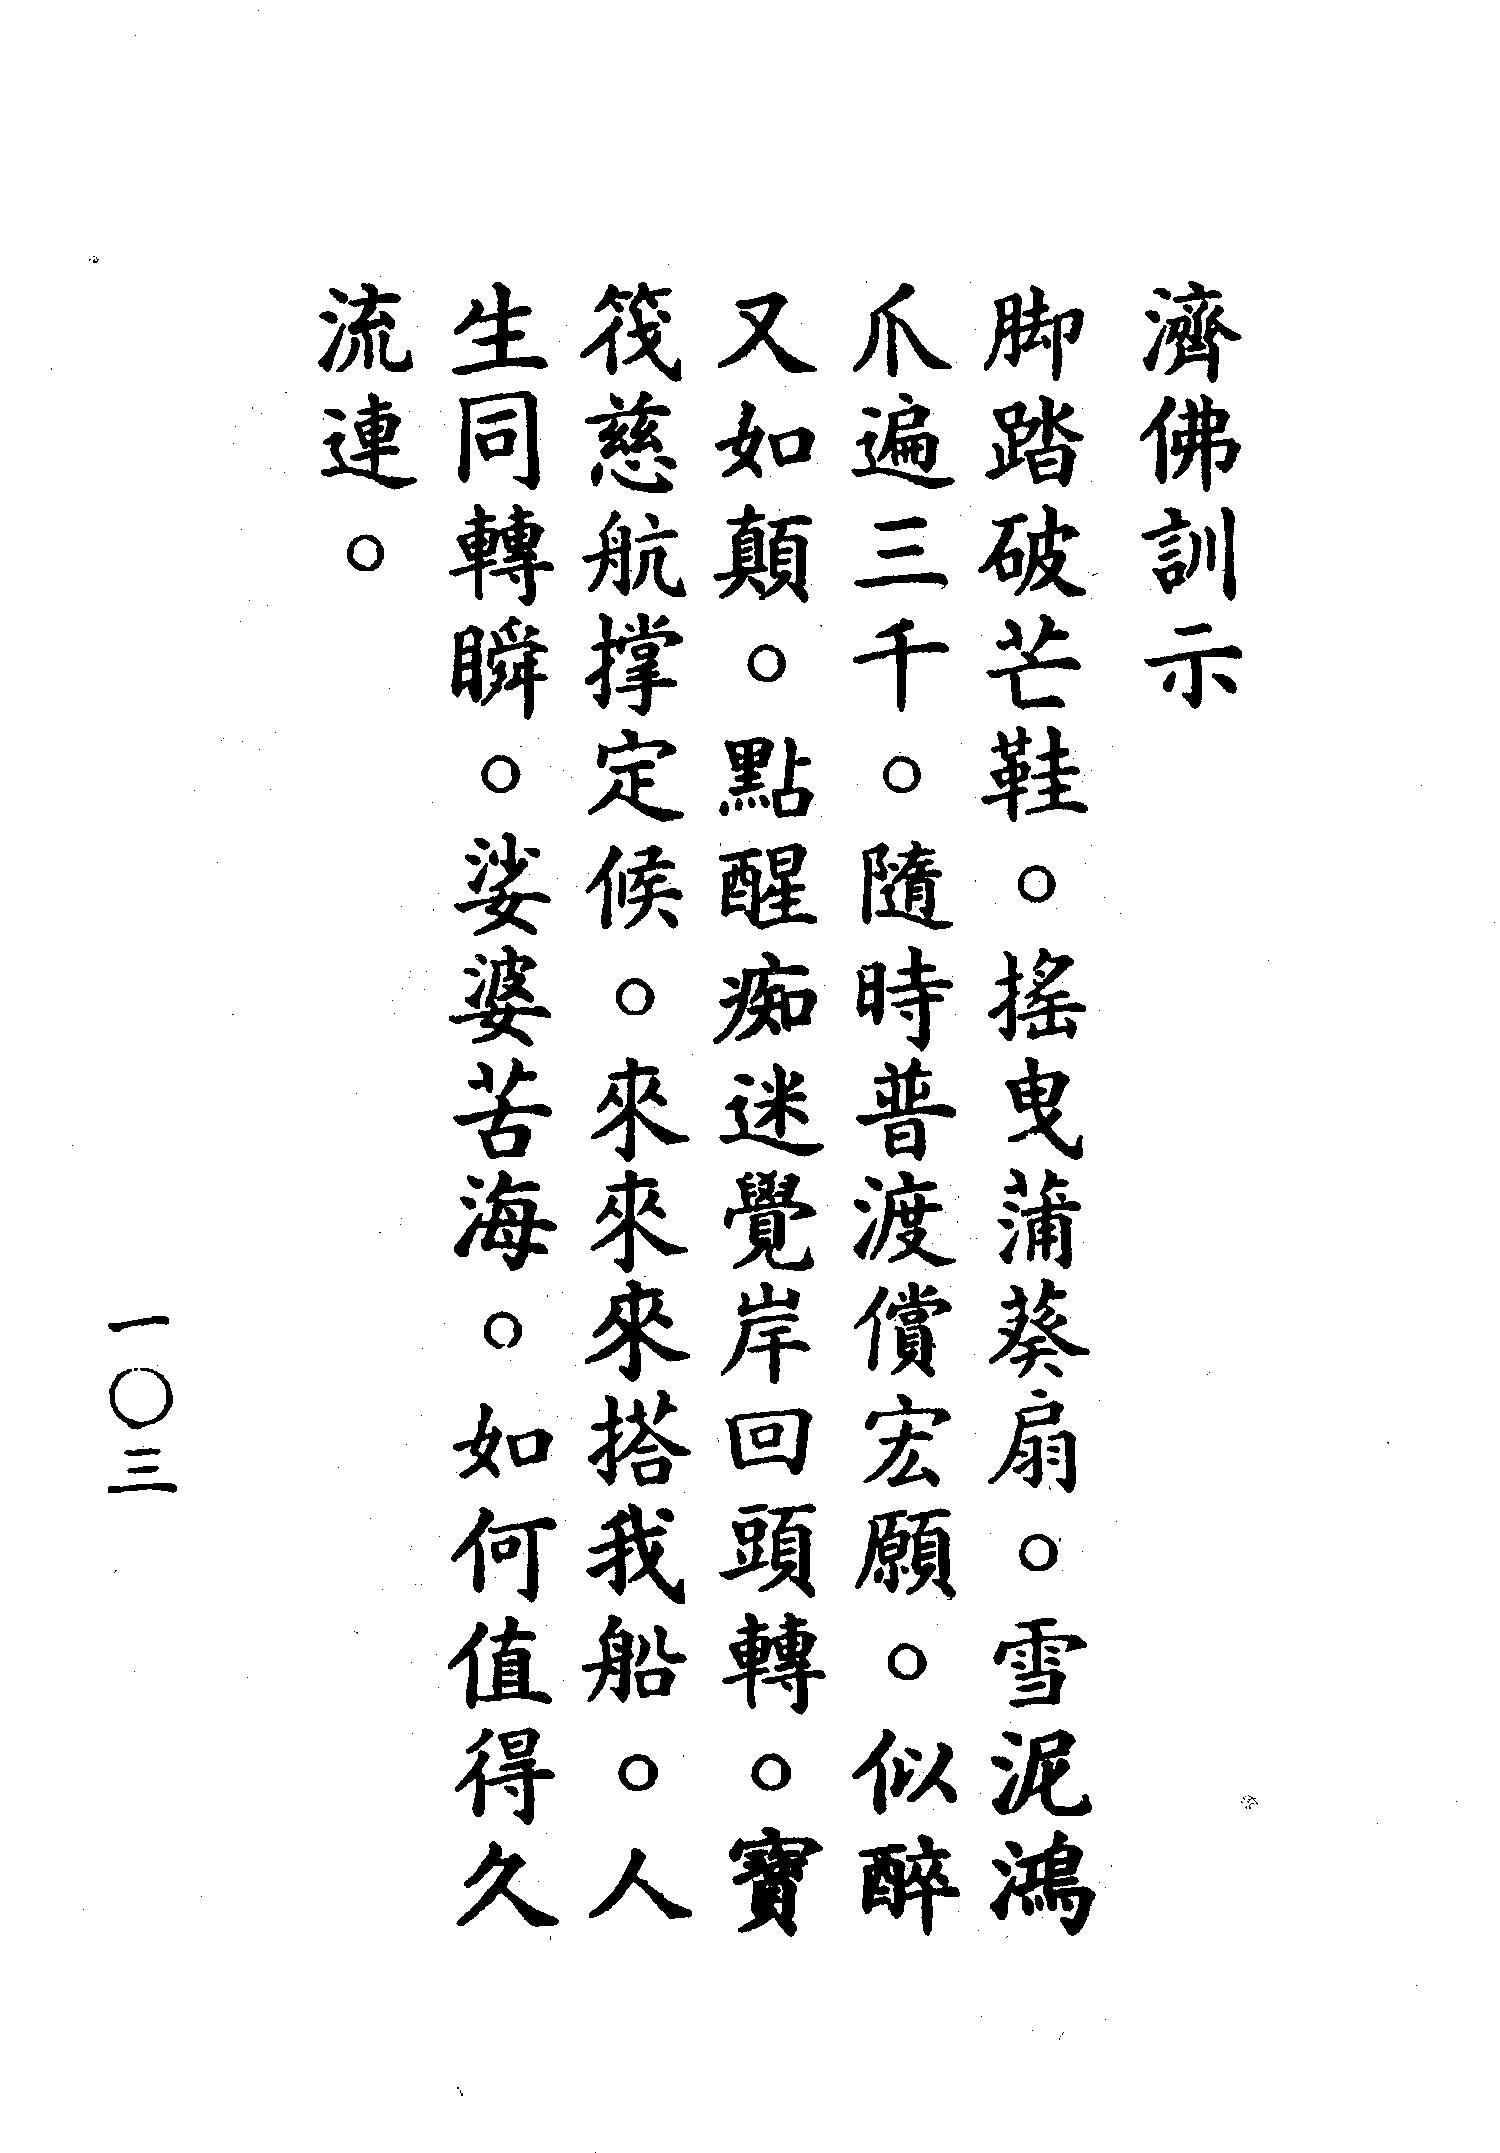 濟佛訓示
脚踏破芒鞋。搖曳蒲葵扇。雪泥鴻
爪遍三千。隨時普渡償宏願。似醉
又如顛。點醒痴迷覺岸回頭轉。寶
筏慈航撑定候。來來來搭我船。人
生同轉瞬。娑婆苦海。如何值得久
流連。
一〇三